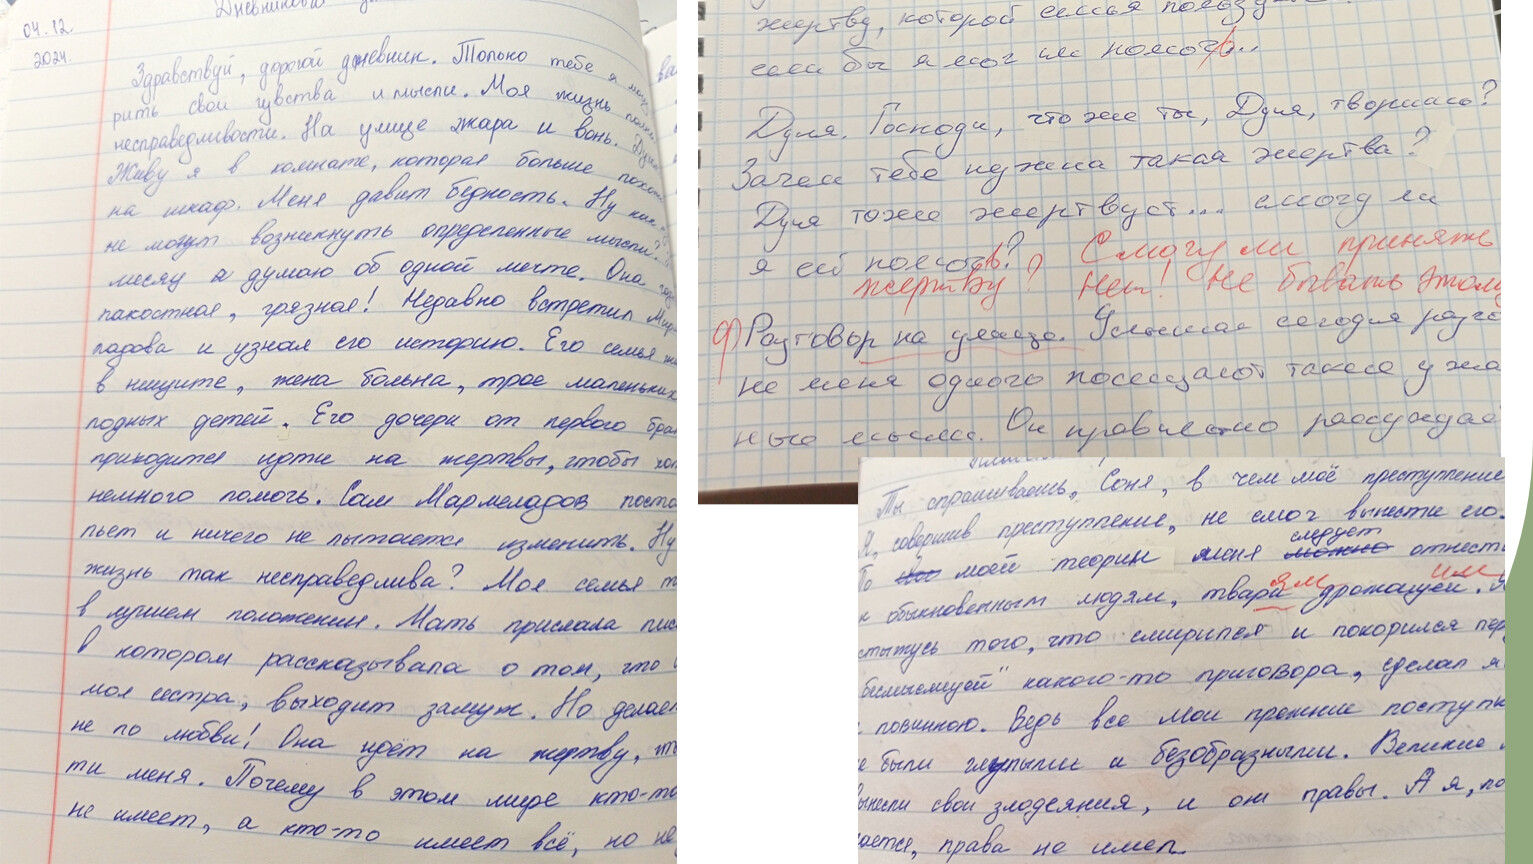 04.12.
2024.
Дневниковая
Здравствуй, дорогой дневник. Только тебе я могу
рить свои чувства и мысли. Моя жизнь полна
несправедливости. На улице жара и вонь.
Живу я в комнате, которая больше похожа
на шкаф. Меня давит бедность. Ну как
не могут возникнуть определенные мысли?
месяц я думаю об одной мечте. Она
пакостная, грязная! Недавно встретил Мар-
ладова и узнал его историю. Его семья
в нищите, жена больна, трое маленьких
лодных детей. Его дочери от первого брака
приходится идти на жертвы, чтобы хоть
немного помочь. Сам Мармеладов посто
пьет и ничего не пытается изменить. Ну
жизнь так несправедлива? Моя семья
в лучшем положении. Мать прислала пис
в котором рассказывала о том, что
моя сестра, выходит замуж. Но делает
не по любви! Она идёт на жертву, что
ти меня. Почему в этом мире кто-то
не имеет, а кто-то имеет всё, но не
жертву, которой семья
если бы я мог им помочь..
Дуня. Господи, что же ты, Дуня, творишь?
Зачем тебе нужна такая жертва?
Дуня тоже жертвует... смогу ли
я ей помочь? Смогу ли принять
жертву? Нет! Не бывать этому
Разговор на улице. Услышал сегодня разго
не меня одного посещают такие ужа
ные мысли. Он правильно рассуждае
Ты спрашиваешь, Соня, в чем моё преступление
Я, совершив преступление, не смог вынести его.
По моей теории меня следует можно отнести
к обыкновенным людям, тварям дрожащим.
стыжусь того, что смирился и покорился пер
бессмыслицей" какого-то приговора, сделал я
с повинною. Ведь все мои прежние поступки
не были глупыми и безобразными. Великие
вынесли свои злодеяния, и они правы. А я, по
ается, права не имел.